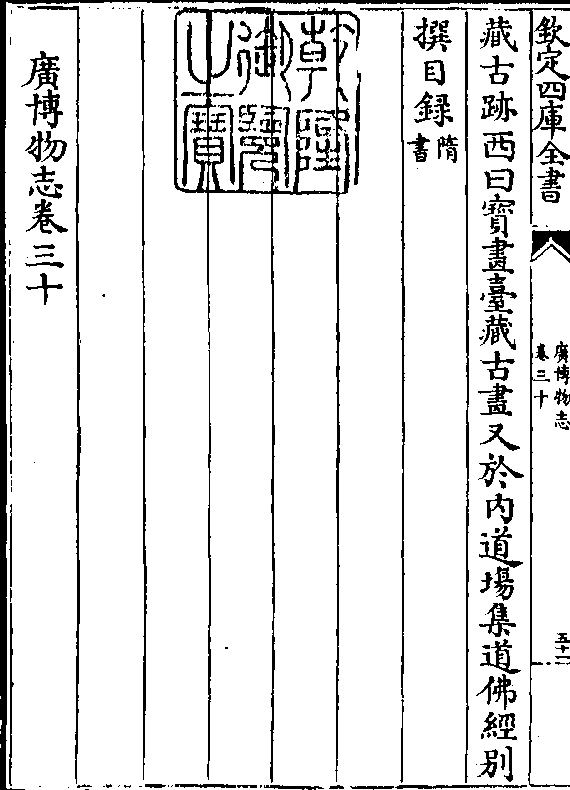 欽定四庫全書
廣博物志
卷三十
五十一
藏古跡西曰寳畫臺藏古畫又於内道塲集道佛經别
撰目録隋書
乾隆御覽之寶
廣博物志卷三十